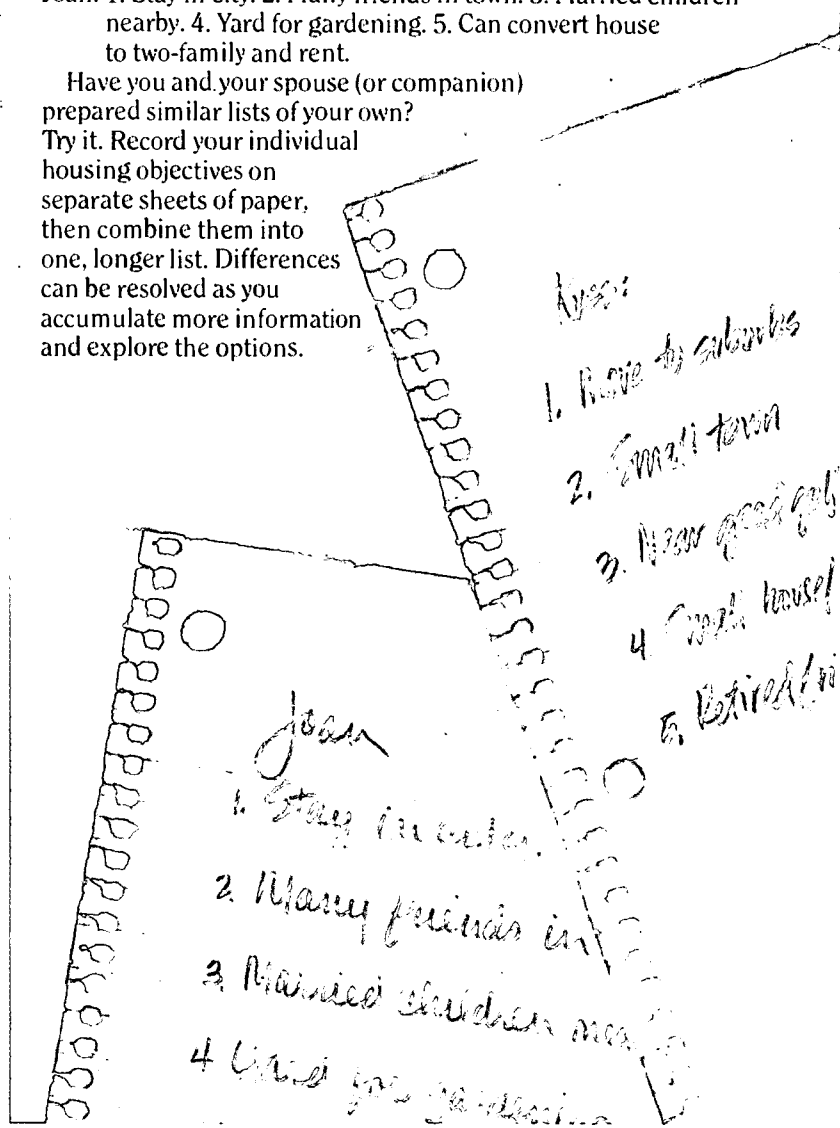 Joan: 1. Stay in city. 2. Many friends in town. 3. Married children
nearby. 4. Yard for gardening. 5. Can convert house
to two-family and rent.
Have you and your spouse (or companion)
prepared similar lists of your own?
Try it. Record your individual
housing objectives on
separate sheets of paper,
then combine them into
one, longer list. Differences
can be resolved as you
accumulate more information
and explore the options.
1. Move to suburbs
2. Small town
3. Near good
4. Small house/
5. Retired
Joan
1. Stay in
2. Many friends in
3. Married children
4 Yard for gardening